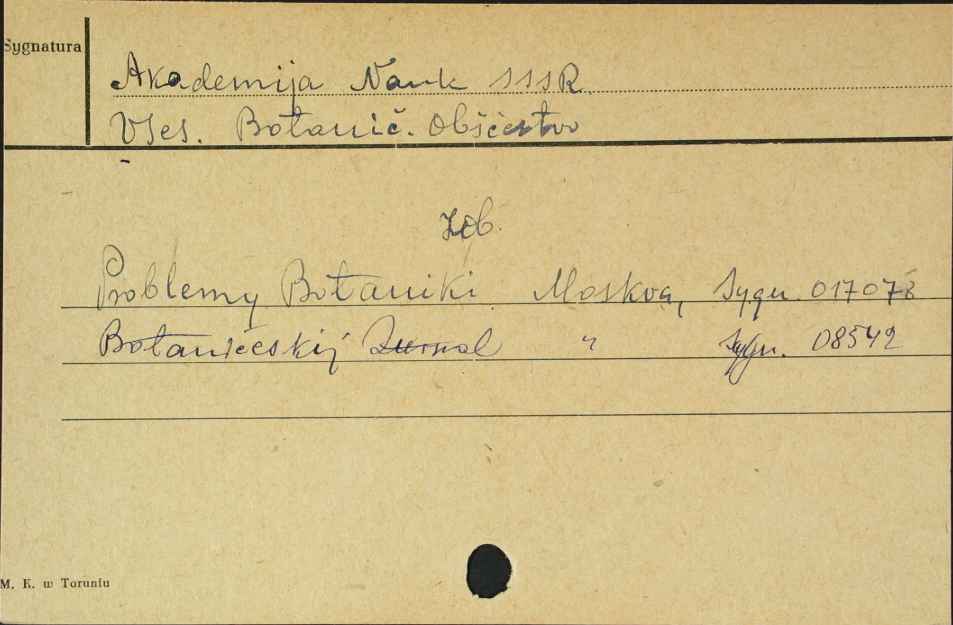 Sygnatura
Akademija Nauk SSSR.
Vses. Botanič. Obščestvo
Zob.
Problemy Botaniki Moskva, Sygn. 017078
Botaničeskij Žurnal " Sygn. 08542
M. K. w Toruniu